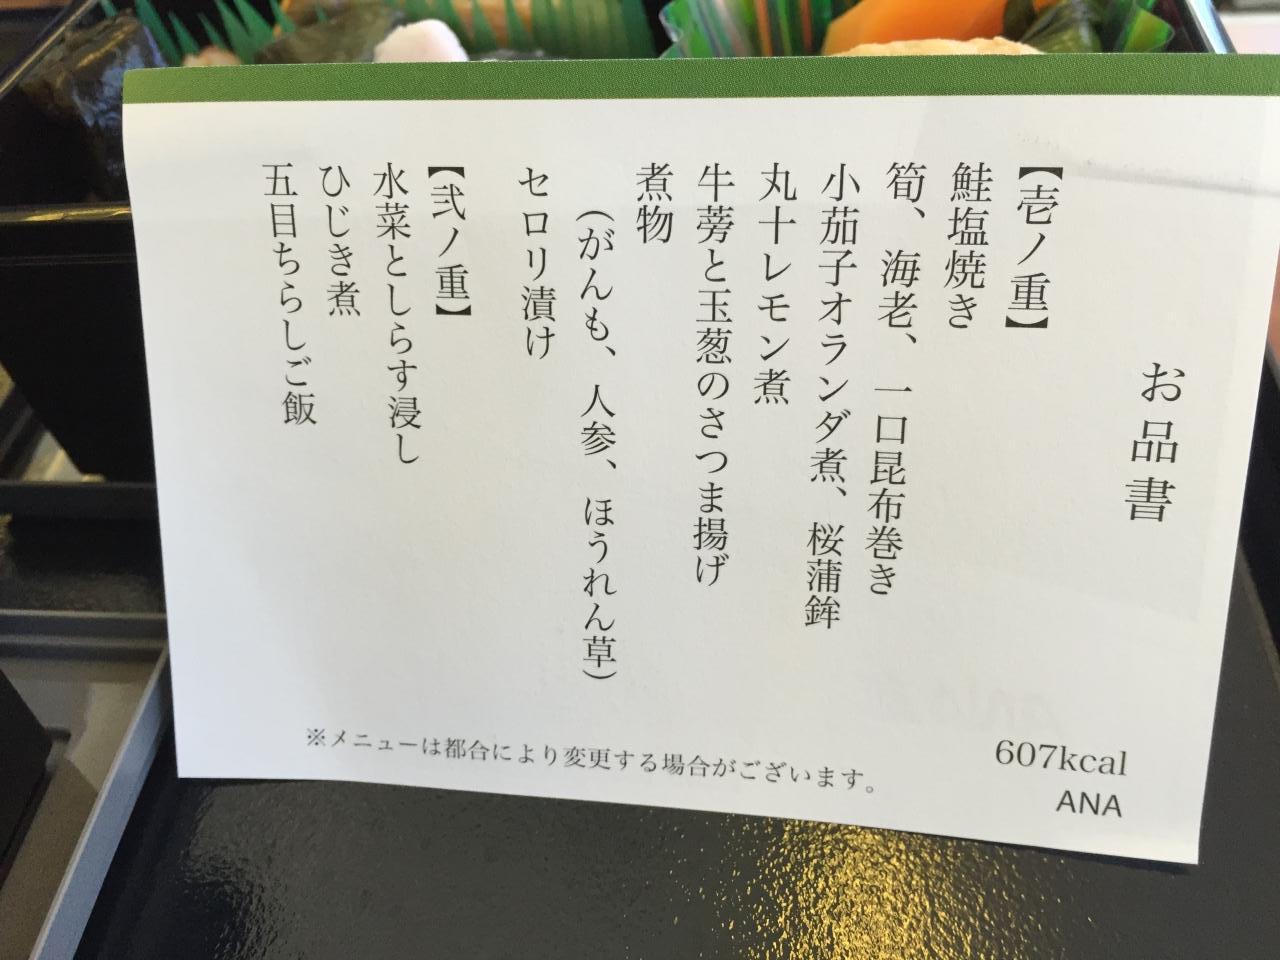 お品書
【壱ノ重】
鮭塩焼き
筍、海老、一口昆布巻き
小茄子オランダ煮、桜蒲鉾
丸十レモン煮
牛蒡と玉葱のさつま揚げ
煮物
(がんも、人参、ほうれん草)
セロリ漬け
【弐ノ重】
水菜としらす浸し
ひじき煮
五目ちらしご飯
607kcal
ANA
※メニューは都合により変更する場合がございます。